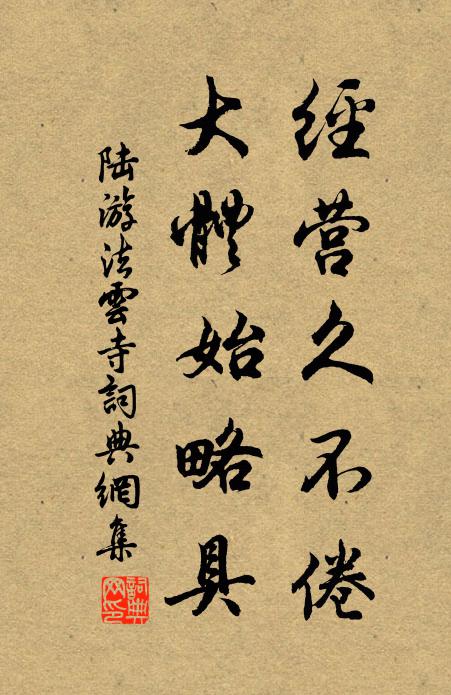 經营久不倦
大體始略具
陆游法雲寺詞典網集
詞典网印